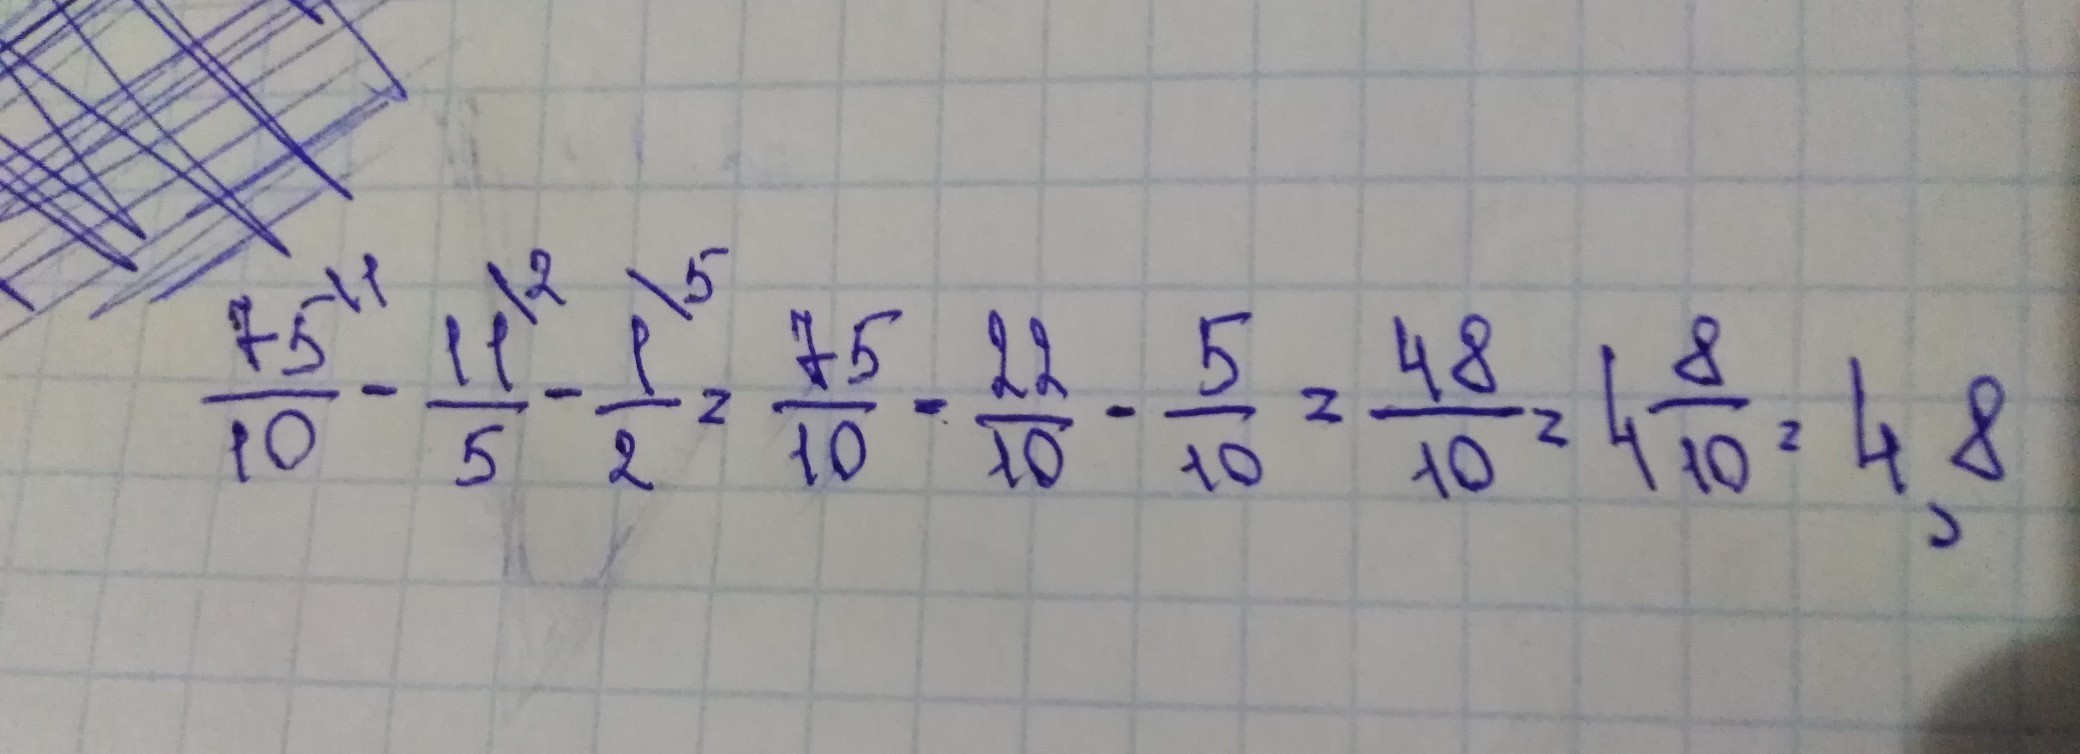 75\1/10 - 11\2/5 - 1\5/2 = 75/10 - 22/10 - 5/10 = 48/10 = 4 8/10 = 4,8